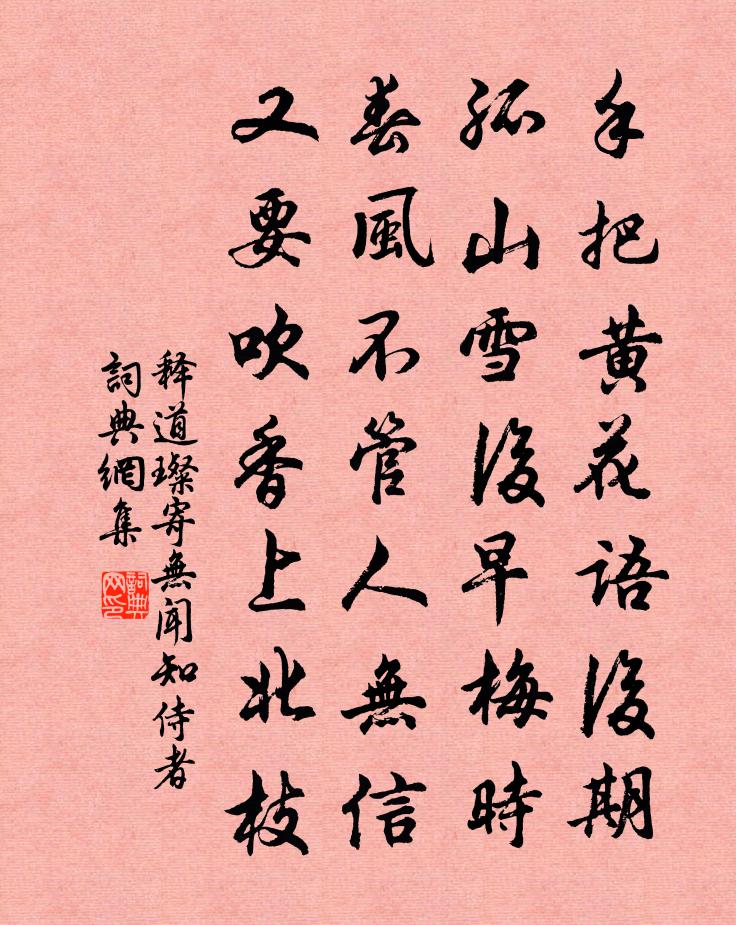 手把黄花語後期
孤山雪後早梅時
春風不管人無信
又要吹香上北枝
释道璨寄無聞知侍者
詞典網集
詞典网印